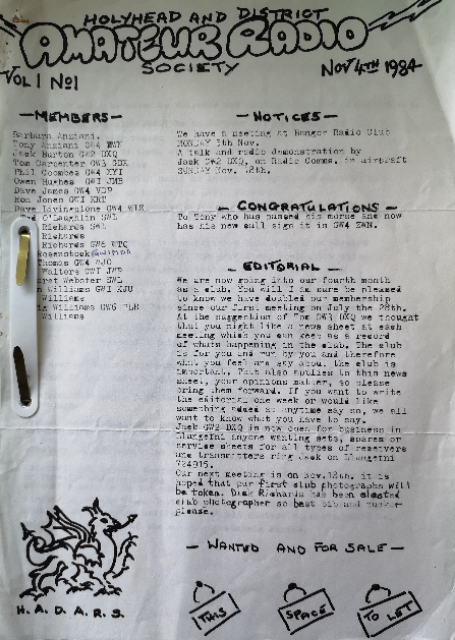 HOLYHEAD AND DISTRICT
AMATEUR RADIO
SOCIETY
VOL 1 No1
NOV 4TH 1984
— MEMBERS —
Barbara Anziani.
Tony Anziani GW4
Jack Burton GW2 DXQ
Tom Carpenter GW3
Phil Coombes GW4 XYI
Owen Hughes GW1 JMB
Dave Jones GW4 VDP
Ron Jones GW1 KRT
Dave Livingstone GW4
O'Laughlin SWL
Richards SWL
Richards
Richards GW6
Rosenstock
Thomas GW4
Walters GW1
SWL
Williams GW1 KJU
Williams
Williams GW6
Williams
— NOTICES —
We have a meeting at Bangor Radio Club
MONDAY 5th Nov.
A talk and radio demonstration by
Jack GW2 DXQ, on Radio Comms. in aircraft
SUNDAY Nov. 18th.
— CONGRATULATIONS —
To Tony who has passed his morse and now
has his new call sign it is GW4
— EDITORIAL —
We are now going into our fourth month
as a club. You will I'm sure be pleased
to know we have doubled our membership
since our first meeting on July the
At the suggestion of Tom GW3 we thought
that you might like a news sheet at each
meeting which you can keep as a record
of whats happening in the club. The club
is for you and run by you and therefore
what you feel and say about the club is
important. This also applies to this news
sheet, your opinions matter, so please
bring them forward. If you want to write
the editorial one week or would like
something added at anytime say so, we all
want to know what you have to say.
Jack GW2 DXQ is now open for business in
Llangefni anyone wanting sets, spares or
service sheets for all types of receivers
and transmitters ring Jack on Llangefni
724915.
Our next meeting is on nov.18th. it is
hoped that our first club photographs will
be taken. Dick Richards has been elected
club photographer so best bib and tucker
please.
— WANTED AND FOR SALE —
THIS
SPACE
TO LET
H. A. D. A. R. S.